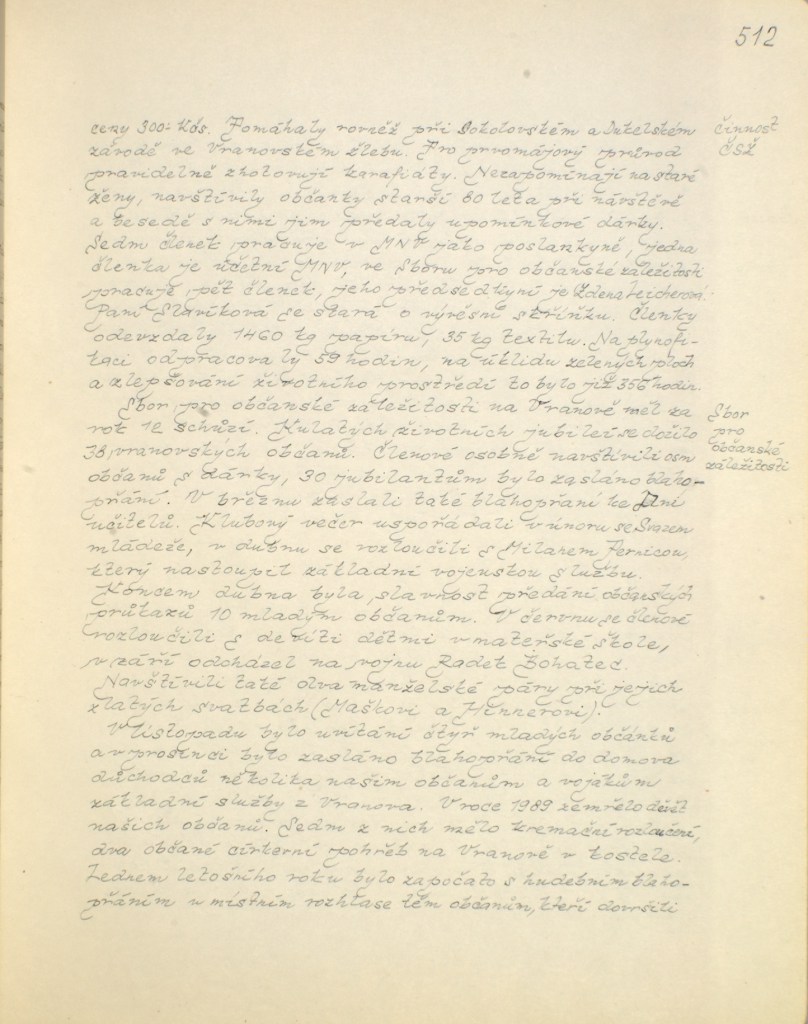 512
ceny 300.- Kčs. Pomáhaly rovněž při Sokolovském a Dukelském
závodě ve Vranovském žlebu. Pro prvomájový průvod
pravidelně zhotovují karafiáty. Nezapomínají na staré
ženy, navštívily občanky starší 80 leta při návštěvě
a besedě s nimi jim předaly upomínkové dárky.
Sedm členek pracuje v MNV jako poslankyně, jedna
členka je účetní MNV, ve Sboru pro občanské záležitosti
pracuje pět členek, jeho předsedkyní je Zdena
Paní Slavíková se stará o vývěsní skříňku. Členky
odevzdaly 1460 kg papíru, 35 kg textilu. Na plynofi-
kaci odpracovaly 59 hodin, na úklidu zelených ploch
a zlepšování životního prostředí to bylo již 356 hodin.
činnost
ČSŽ
Sbor pro občanské záležitosti na Vranově měl za
rok 12 schůzí. Kulatých životních jubileí se dožilo
38 vranovských občanů. Členové osobně navštívili osm
občanů s dárky, 30 jubilantům bylo zasláno blaho-
přání. V březnu zaslali také blahopřání ke Dni
učitelů. Klubový večer uspořádali v únoru se Svazem
mládeže, v dubnu se rozloučili s Milanem
který nastoupil základní vojenskou službu.
Koncem dubna byla slavnost předání občanských
průkazů 10 mladým občanům. V červnu se členové
rozloučili s devíti dětmi v mateřské škole,
v září odcházel na vojnu Radek Bohatec.
Navštívili také dva manželské páry při jejich
zlatých svatbách (Maškovi a Hinnerovi).
V listopadu bylo uvítání čtyř mladých občánků
a v prosinci bylo zasláno blahopřání do domova
důchodců několika našim občanům a vojákům
základní služby z Vranova. V roce 1989 zemřelo devět
našich občanů. Sedm z nich mělo kremační rozloučení,
dva občané církevní pohřeb na Vranově v kostele.
Lednem letošního roku bylo započato s hudebním blaho-
přáním v místním rozhlase těm občanům, kteří dovršili
Sbor
pro
občanské
záležitosti